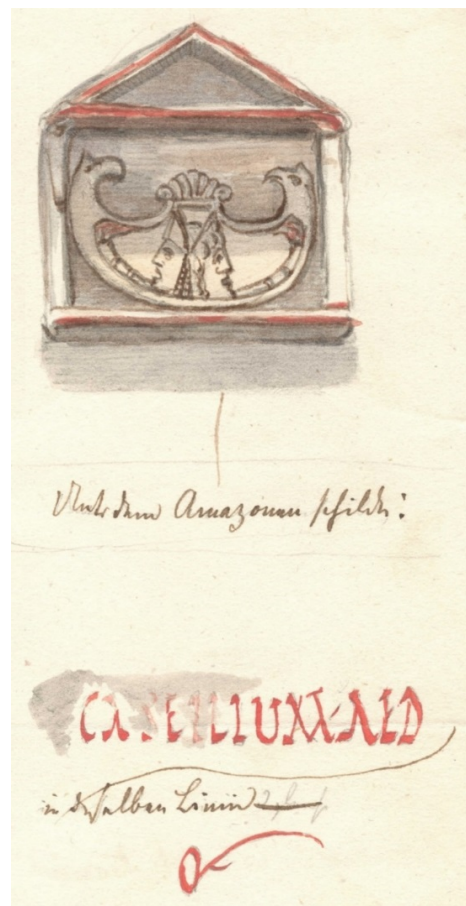 Unter dem Amazonen schilde:
CASELLIUM·AED
in derselben Linie